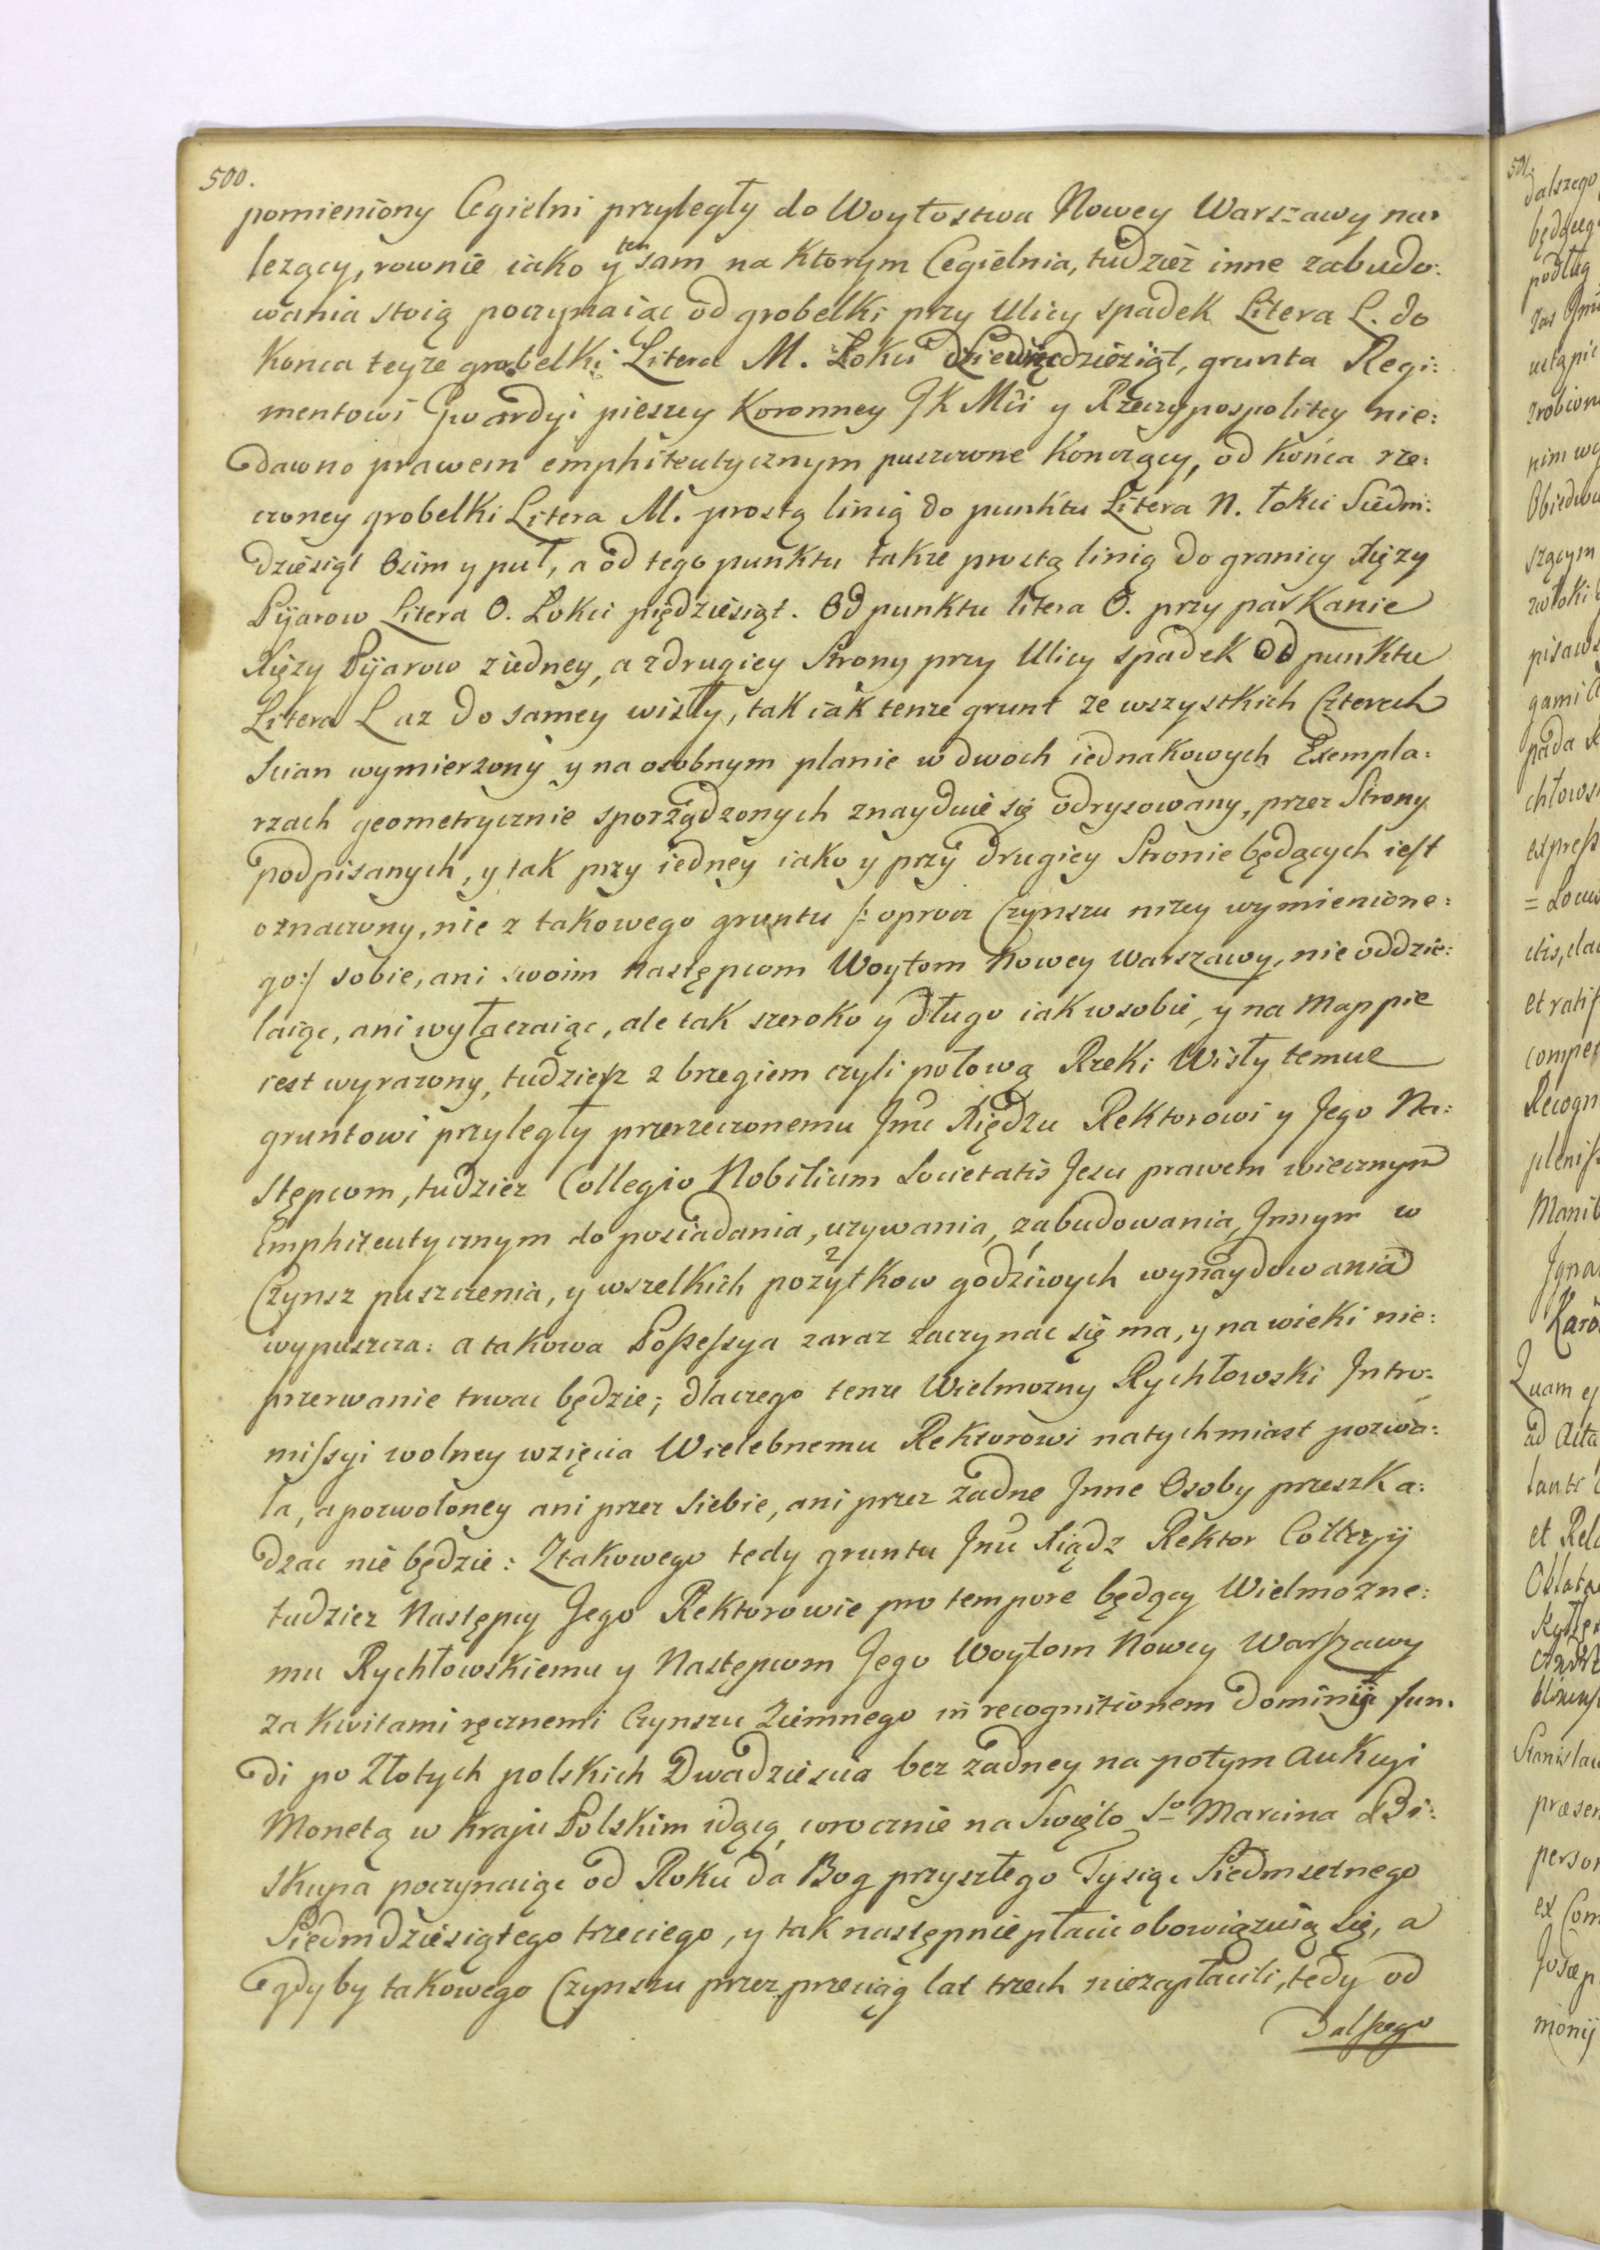 500.
pomieniony Cegielni przyległy do Woytostwa Nowey Warszawy na:
lezący, rownie iako y ten sam na ktorym Cegielnia, tudzież inne zabudo:
wania stoią poczynaiąc od grobelki przy Ulicy spadek Litera L. do
konca teyze grobelki Litera M. Łokci dziewiędziesiąt, grunta Regi:
mentowi Gwardyi pieszey Koronney JK Mći y Rzeczypospolitey nie:
dawno prawem emphiteutycznym puszczone konczący, od końca rze:
czoney grobelki Litera M. prostą linią do punktu Litera N. łokci Siedm:
dziesiąt Osim y puł, a od tego punktu takze prostą linią do granicy Xięzy
Pijarow Litera O. Łokci piędziesiąt. Od punktu litera O. przy parkanie
Xięzy Pijarow ziedney, a zdrugiey Strony przy Ulicy spadek od punktu
Litera L az do samey wisły, tak iak tenze grunt ze wszystkich Czterech
Scian wymierzony y na osobnym planie w dwoch iednakowych Exempla:
rzach geometrycznie sporządzonych znayduie się odrysowany, przez Strony
podpisanych, y tak przy iedney iako y przy drugiey Stronie będących iest
oznaczony, nie z takowego gruntu /: oprocz Czynszu nizey wymienione:
go :/ sobie, ani swoim następcom Woytom Nowey Warszawy, nie oddzie:
laiąc, ani wyłączaiąc, ale tak szeroko y długo iak w sobie, y na Mappie
iest wyrazony, tudziesz z brzegiem czyli połową Rzeki Wisły temuz
gruntowi przyległy przerzeczonemu Jmć Xiędzu Rektorowi y Jego Na:
stępcom, tudziez Collegio Nobilium Societatis Jesu prawem wiecznym
Emphiteutycznym do posiadania, uzywania, zabudowania, Jnnym w
Czynsz puszczenia, y wszelkich pożytkow godziwych wynaydowania
wypuszcza: a takowa Possessya zaraz zaczynac się ma, y na wieki nie:
przerwanie trwac będzie; dlaczego tenze Wielmozny Rychłowski Jntro:
missyi wolney wzięcia Wielebnemu Rektorowi natychmiast pozwa:
la, a pozwoloney ani przez siebie, ani przez żadne Jnne Osoby przeszka:
dzac nie będzie: Z takowego tedy gruntu Jmć Xiądz Rektor
tudziez Następcy Jego Rektorowie pro tempore będący Wielmozne:
mu Rychłowskiemu y Następcom Jego Woytom Nowey Warszawy
za kwitami ręcznemi Czynszu Ziemnego in recognitionem Dominij fun:
di po Złotych polskich Dwadziescia bez żadney na potym Aukcyi
Monetą w kraju Polskim idącą, corocznie na Swięto So Marcina Bi:
skupa poczynaiąc od Roku da Bog przyszłego Tysiąc Siedmsetnego
Siedmdziesiątego trzeciego, y tak następnie płacic obowiązuią się, a
gdyby takowego Czynszu przez przeciąg lat trzech niezapłacili, tedy od
Dalszego